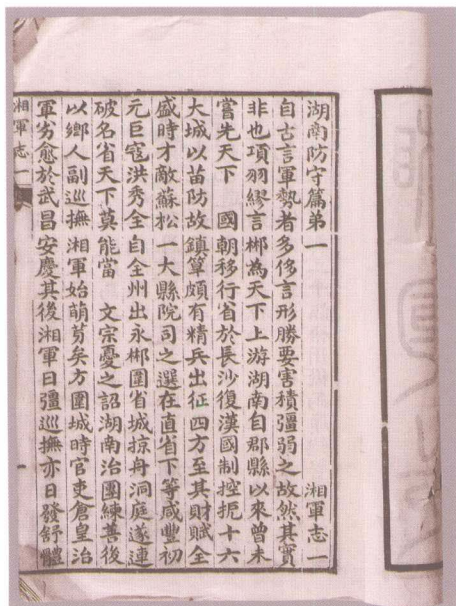 湖南防守篇弟一
湘軍志一
自古言軍勢者多侈言形勝要害積彊弱之故然其實
非也項羽繆言郴為天下上游湖南自郡縣以來曾未
嘗先天下 國朝移行省於長沙復漢國制控扼十六
大城以苗防故鎮筸頗有精兵出征四方至其財賦全
盛時才敵蘇松一大縣院司之選在直省下等咸豐初
元巨寇洪秀全自全州出永郴圍省城掠舟洞庭遂連
破名省天下莫能當 文宗憂之詔湖南治團練善後
以鄉人副巡撫湘軍始萌芽矣方圍城時官吏倉皇治
軍劣愈於武昌安慶其後湘軍日彊巡撫亦日發舒體
湘軍志一